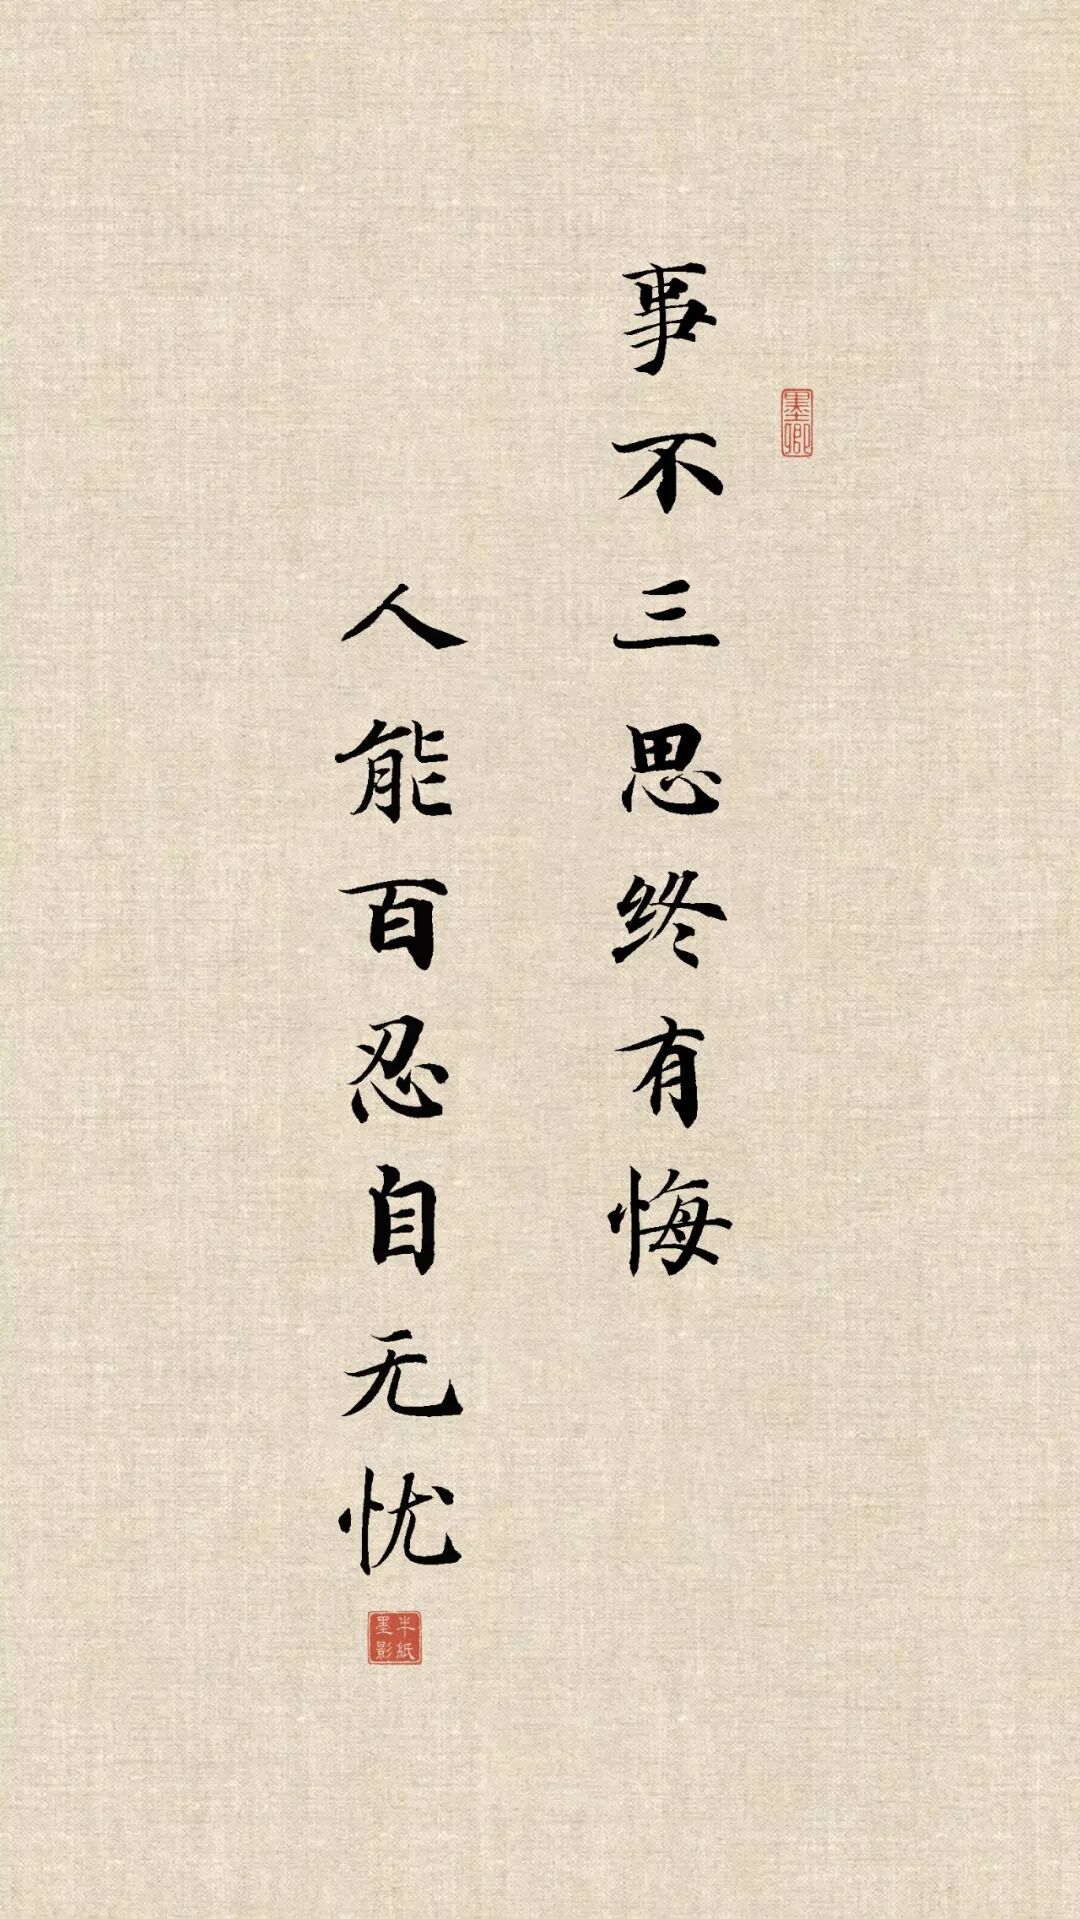 事不三思终有悔
人能百忍自无忧
墨卿
半纸墨影